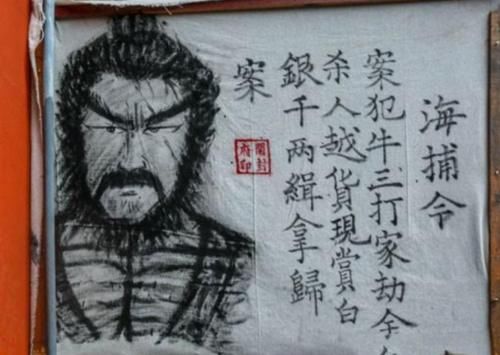 海捕令
案犯牛三打家劫舍
杀人越货現賞白
銀千两緝拿歸
案
開封
府印